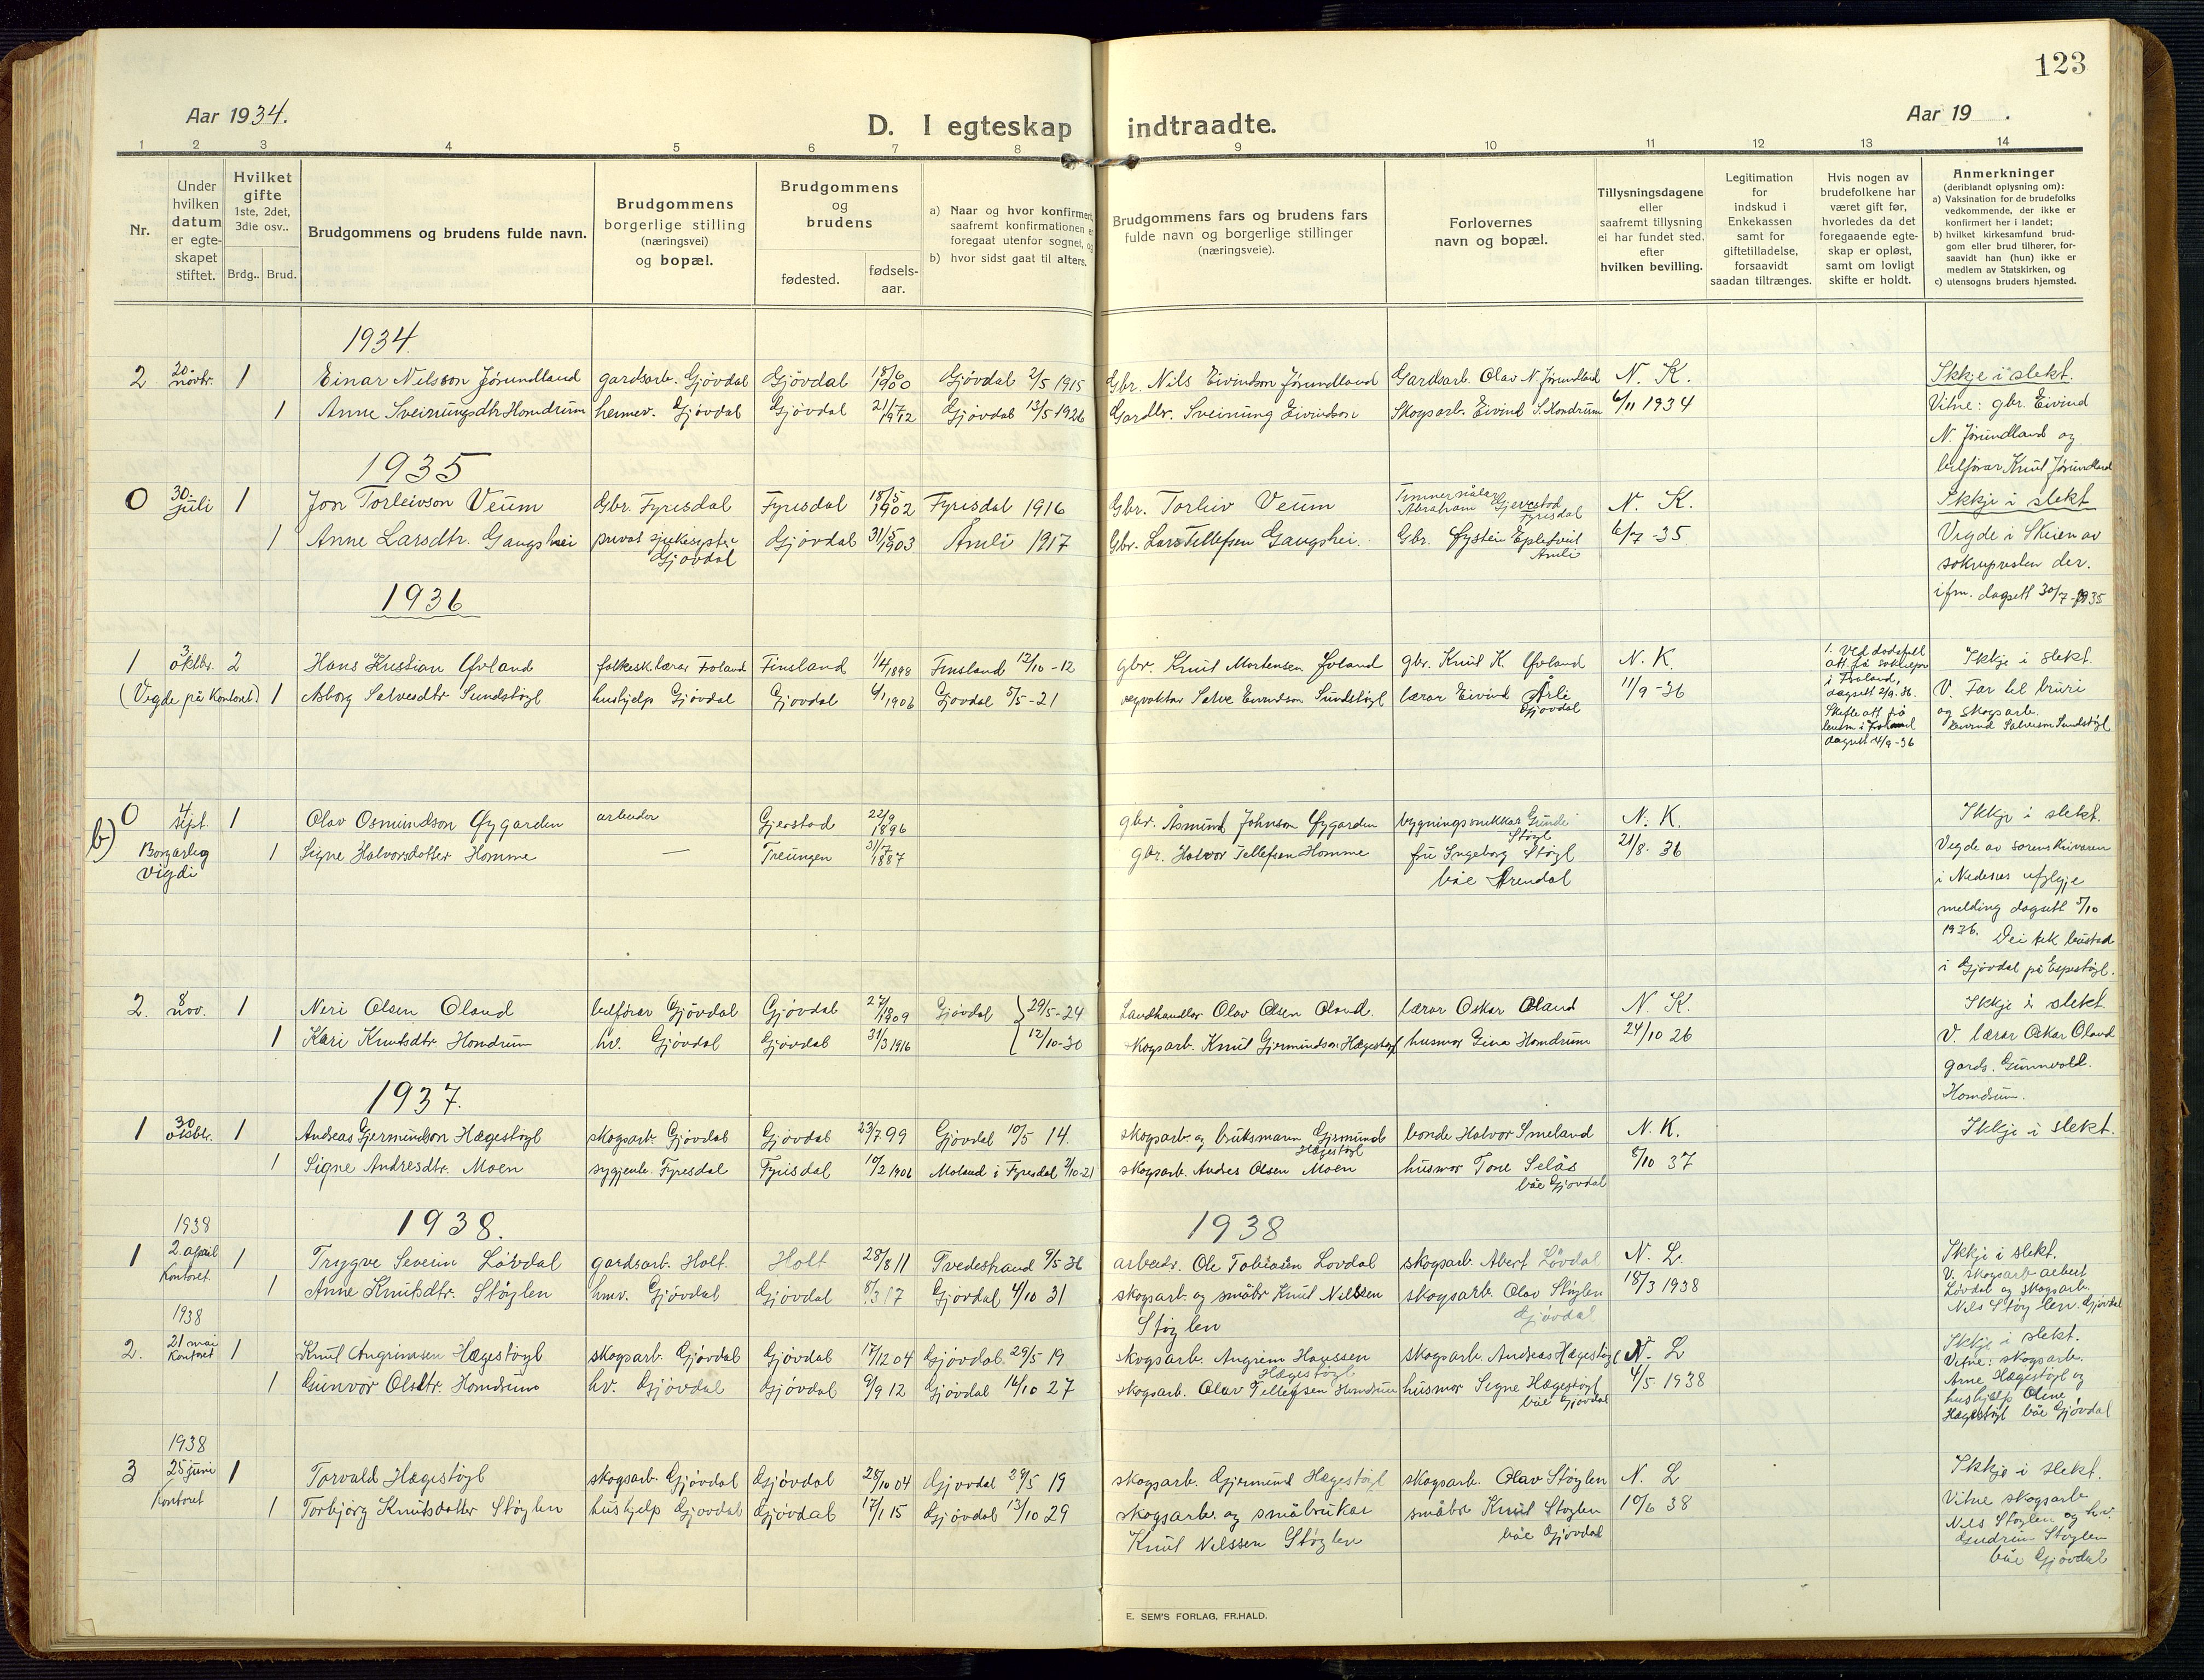 123
Aar 1934.
D. I egteskap indtraadte.
Aar 19 .
1 2 3 4 5 6 7 8 9 10 11 12 13 14
Nr.
Under hvilken datum er egte-skapet stiftet.
Hvilket gifte 1ste, 2det, 3die osv..
Brdg.. Brud.
Brudgommens og brudens fulde navn.
Brudgommens borgerlige stilling (næringsvei) og bopæl.
Brudgommens og brudens
fødested.
fødsels-aar.
a) Naar og hvor konfirmert, saafremt konfirmationen er foregaat utenfor sognet, og
b) hvor sidst gaat til alters.
Brudgommens fars og brudens fars fulde navn og borgerlige stillinger (næringsveie).
Forlovernes navn og bopæl.
Tillysningsdagene eller saafremt tillysning ei har fundet sted, efter hvilken bevilling.
Legitimation for indskud i Enkekassen samt for giftetilladelse, forsaavidt saadan tiltrænges.
Hvis nogen av brudefolkene har været gift før, hvorledes da det foregaaende egte-skap er opløst, samt om lovligt skifte er holdt.
Anmerkninger (deriblandt oplysning om):
a) Vaksination for de brudefolks vedkommende, der ikke er konfirmert her i landet;
b) hvilket kirkesamfund brud-gom eller brud tilhører, for-saavidt han (hun) ikke er medlem av Statskirken, og
c) utensogns bruders hjemsted.
1934.
2 20. novbr. 1 Einar Nilsson Jørundland gardsarb. Gjövdal Gjövdal 18/6 1900 Gjövdal 2/5 1915 Gbr. Nils Eivindson Jørundland Gardsarb. Olav N. Jørundland N. K. Ikkje i slekt.
1 Anne Sveinungsdtr Homdrum heimev. Gjövdal Gjövdal 21/7 1912 Gjövdal 13/5 1926 Gardbr. Sveinung Eivindson Skogsarb. Eivind S. Homdrum 6/11 1934 Vitne: gbr. Eivind
N. Jørundland og
bilførar Knut Jørundland
1935
0 30. juli 1 Jon Torleivson Veum Gbr. Fyresdal Fyresdal 18/5 1902 Fyresdal 1916 Gbr. Torleiv Veum Abraham Gjevestad Fyresdal N. K. Ikkje i slekt
1 Anne Larsdtr. Gaugshei privat sjukesyster Gjövdal Gjövdal 31/5 1903 Åmli 1917 Gbr. Lars Tellefsen Gaugshei. Gbr. Øystein Epletveit Åmli 6/7 -35 Vigde i Skien av
soknepresten der.
ifm. dagsett 30/7-1935
1936
1 3. oktbr. 2 Hans Kristian Øvland folkesk.lærar Froland Finsland 1/4 1898 Finsland 13/10 -12 gbr. Knut Mortensen Øvland gbr. Knut K. Øvland N. K. Ikkje i slekt.
(Vigde på Kontoret) 1 Asborg Salvesdtr Sundstøyl hushjelp Gjövdal Gjövdal 6/1 1906 Gjövdal 5/5 -21 vegvaktar Salve Eivindson Sundstøyl lærar Eivind Årli Gjövdal 11/9 -36 V. Far til bruri
og skogsarb.
Eivind Salveson Sundstøyl
1. Ved dødsfall
att. frå soknepr
i Froland,
dagsett 2/9 -36.
Skifteatt. frå
lensm i Froland
dagsett 4/9 -36
b) 0 4 sept. 1 Olav Osmundson Øygarden arbeider Gjerstad 22/9 1896 gbr. Åsmund Johnson Øygarden bygningssnikkar Gunde Støyl N. K. Ikkje i slekt.
Borgarleg vigdi 1 Signe Halvorsdotter Homme — Treungen 31/7 1887 gbr. Halvor Tellefsen Homme fru Ingeborg Støyl 21/8 - 36 Vigde av sorenskrivaren
båe Arendal
i Nedenes ifylgje
melding dagsett 5/10
1936. Dei fekk bustad
i Gjövdal på Espestøyl.
2. 8 nov. 1 Neri Olsen Oland bilførar Gjövdal Gjövdal 27/1 1909 Gjövdal 29/5 - 24 Landhandlar Olav Olsen Oland. lærar Oskar Oland N. K. Ikkje i slekt.
1 Kari Knutsdtr. Homdrum hv. Gjövdal Gjövdal 31/3 1916 12/10 -30 skogsarb. Knut Gjermundson Hægestøyl husmor Gina Homdrum 24/10 26 V. lærar Oskar Oland
gards. Gunnvald.
Homdrum.
1937.
1 30 oktbr. 1 Andreas Gjermundson Hægestøyl skogsarb. Gjövdal Gjövdal 23/7 99 Gjövdal 10/5 14. skogsarb. og bruksmann Gjermund Hægestøyl bonde Halvor Smeland N. K. Ikkje i slekt.
1 Signe Andresdtr. Moen sygjente. Fyresdal Fyresdal 10/2 1906 Moland i Fyresdal 2/10-21 skogsarb. Andres Olsen Moen husmor Tone Selås båe Gjövdal 8/10 37
1938. 1938
1 1938 2. april Kontoret. 1 Trygve Severin Lövdal gardsarb. Holt. Holt 28/8 11 Tvedestrand 9/5 36 arbeidr. Ole Tobiasen Lovdal skogsarb. Abert Lövdal N. L. Ikkje i slekt.
1 Anne Knutsdtr. Støylen hmv. Gjövdal Gjövdal 8/3 17 Gjövdal 4/10 31 skogsarb. og småbr Knut Nilssen Støylen skogsarb. Olav Støylen Gjövdal 18/3 1938 V. skogsarb albert
Lövdal og skogsarb.
Nils Støylen. Gjövdal
2. 1938 21 mai Kontoret 1 Knut Angrimsen Hægestøyl skogsarb. Gjövdal Gjövdal 17/12 04 Gjövdal. 29/5 19 skogsarb. Angrim Hanssen Hægestøyl skogsarb. Andreas Hægestøyl N. L Ikkje i slekt.
1 Gunvor Olsdtr. Homdrum hv. Gjövdal Gjövdal 9/9 12 Gjövdal 16/10 27 skogsarb. Olav Tellefsen Homdrum husmor Signe Hægestøyl båe Gjövdal 4/5 1938 Vitne: skogsarb.
Arne Hægestøyl og
hushjelp Oline
Hægestøyl båe Gjövdal
3 1938 25 juni Kontoret 1 Torvald Hægestøyl skogsarb. Gjövdal Gjövdal 28/10 04 Gjövdal 29/5 19 skogsarb. Gjermund Hægestøyl skogsarb. Olav Støylen N. L Ikkje i slekt.
1 Torbjørg Knutsdotter Støylen hushjelp Gjövdal Gjövdal 17/1 15 Gjövdal 13/10 29 skogsarb. og småbrukar småbr Knut Støylen 10/6 38 Vitne skogsarb
Knut Nilssen Støylen båe Gjövdal Nils Støylen og hv.
Gudrun Støylen
båe Gjövdal
E. SEM'S FORLAG, FR.HALD.